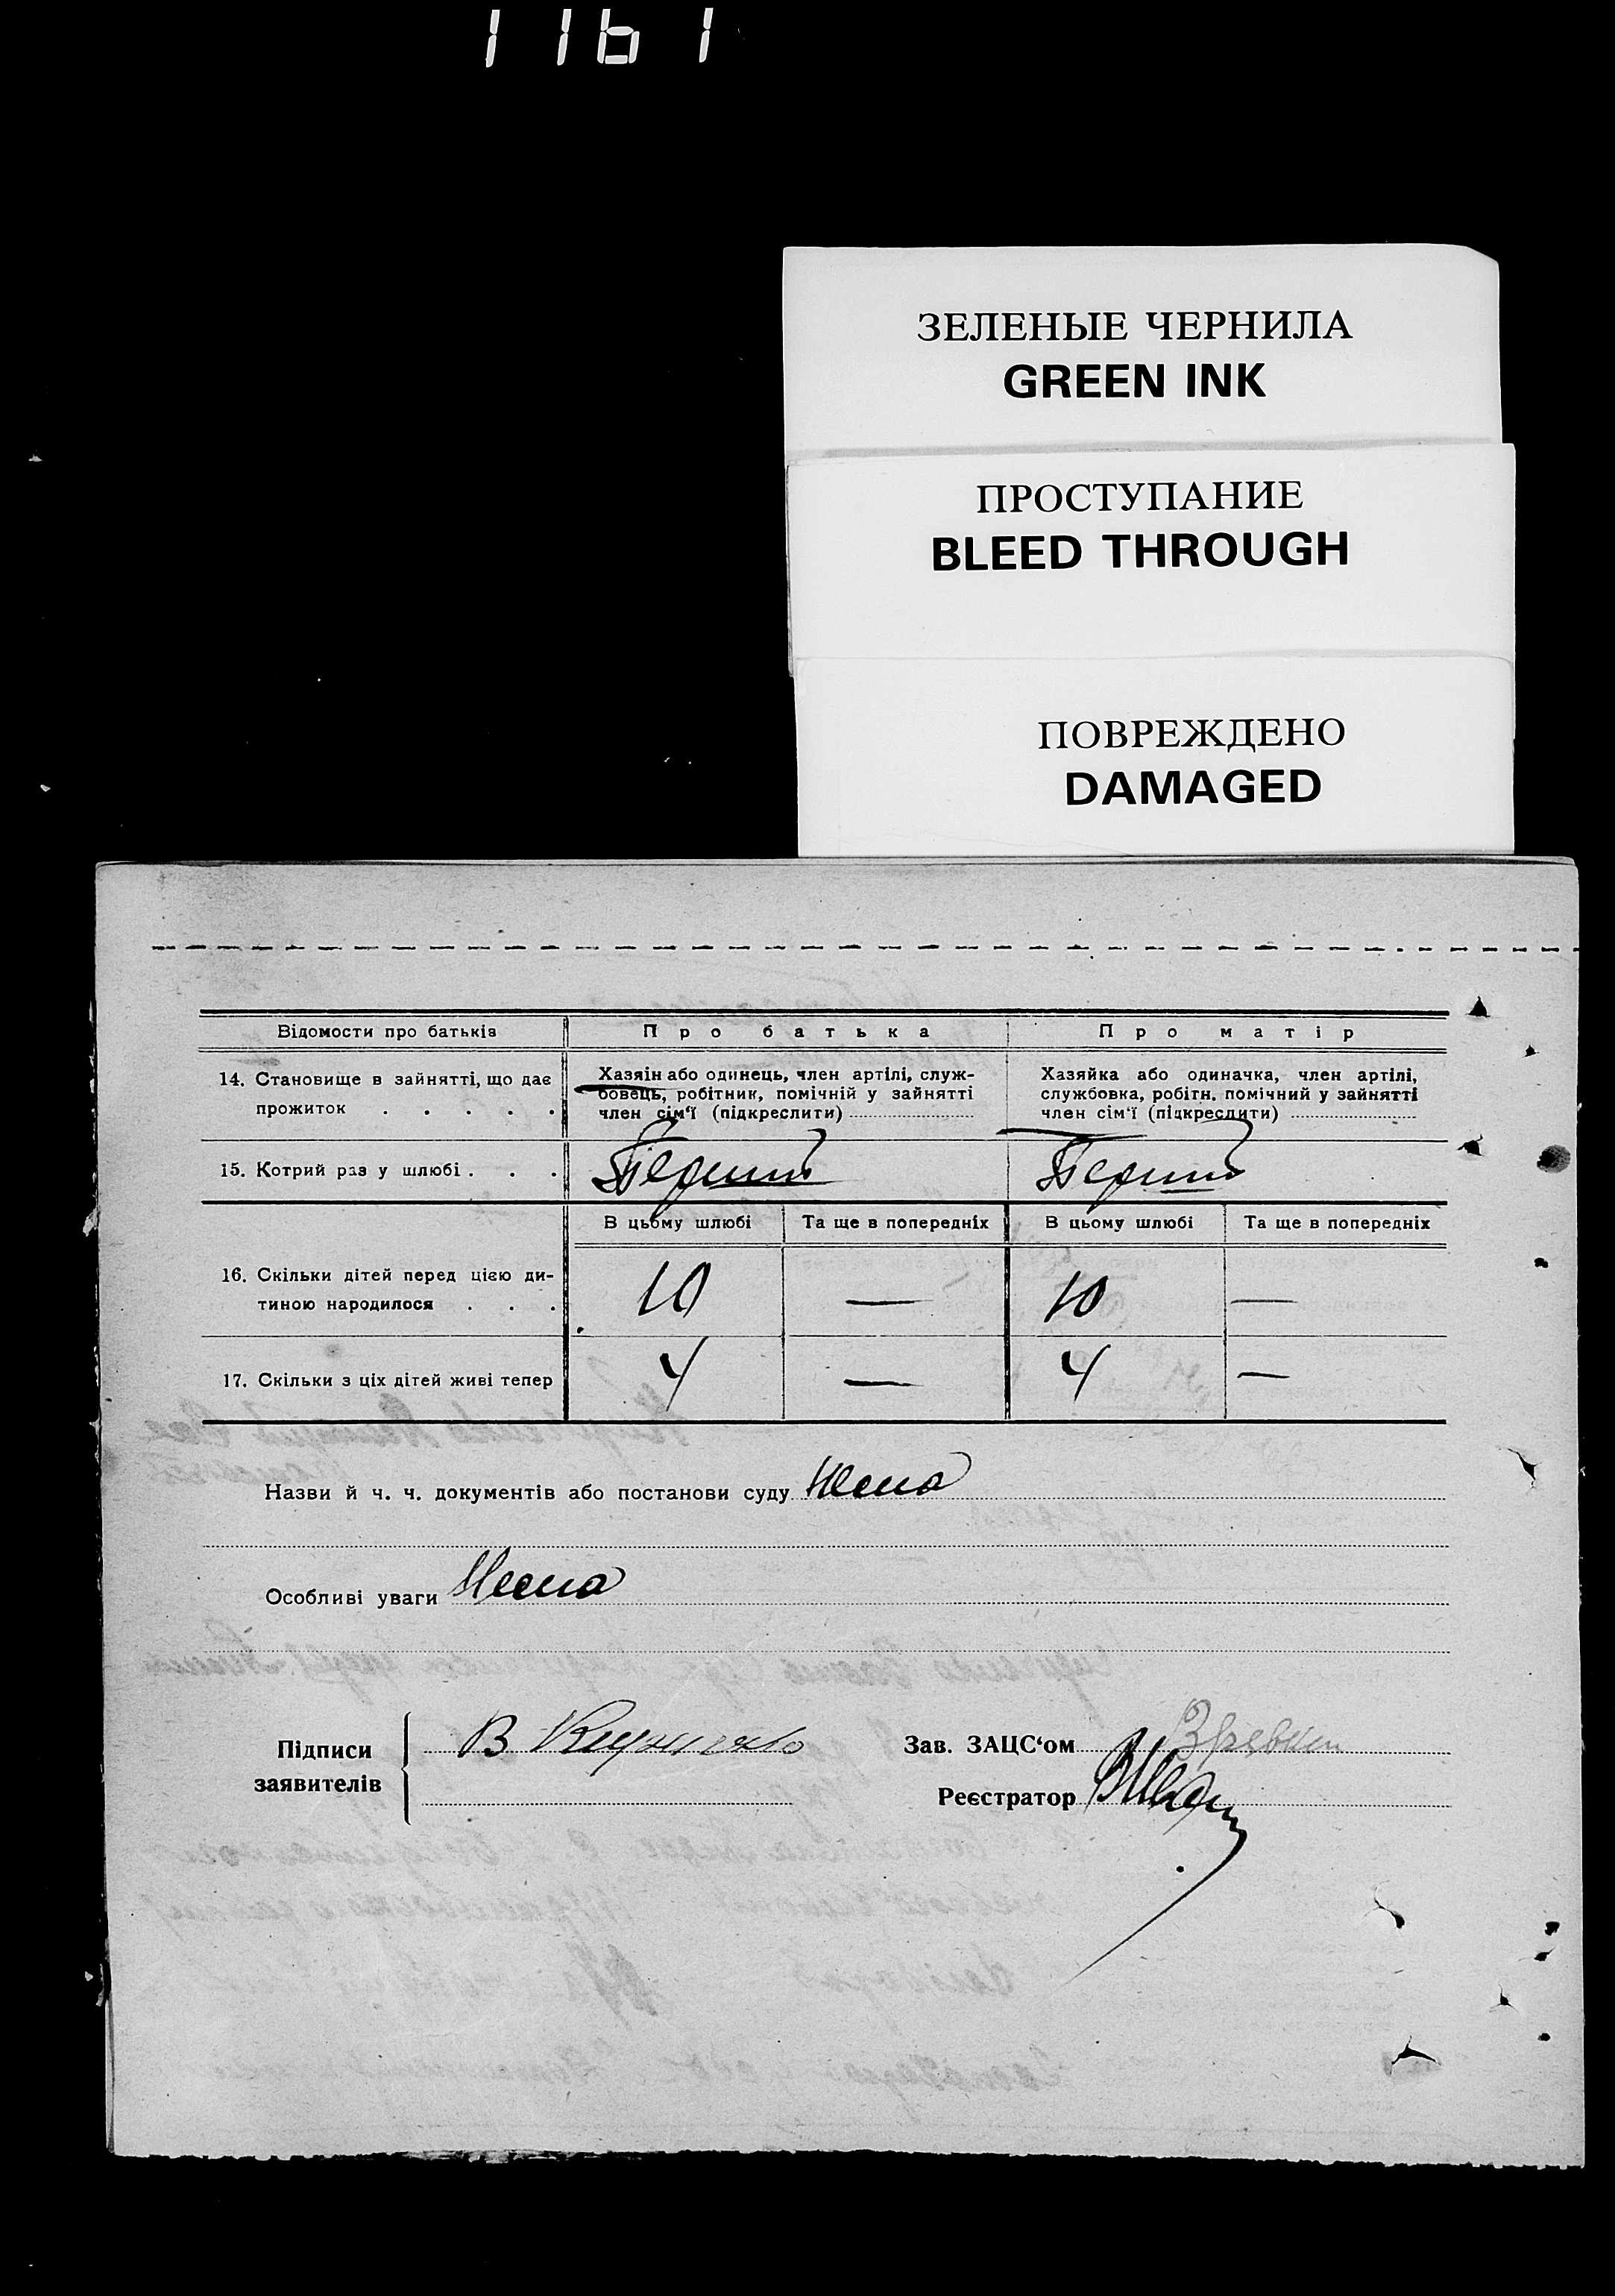 1161
ЗЕЛЕНЫЕ ЧЕРНИЛА
GREEN INK
ПРОСТУПАНИЕ
BLEED THROUGH
ПОВРЕЖДЕНО
DAMAGED
Відомости про батьків Про батька Про матір
14. Становище в зайнятті, що дає прожиток . . . . .
Хазяін або одинець, член артілі, служ-
бовець, робітник, помічній у зайнятті
член сім'ї (підкреслити)
Хазяйка або одиначка, член артілі,
службовка, робітн. помічний у зайнятті
член сім'ї (підкреслити)
15. Котрий раз у шлюбі . . . Перший Перший
В цьому шлюбі Та ще в попередніх В цьому шлюбі Та ще в попередніх
16. Скільки дітей перед цією ди-
тиною народилося . . . 10 — 10 —
17. Скільки з ціх дітей живі тепер 4 — 4 —
Назви й ч. ч. документів або постанови суду Нема
Особливі уваги Нема
Підписи
заявителів
В
Зав. ЗАЦС'ом
Реєстратор